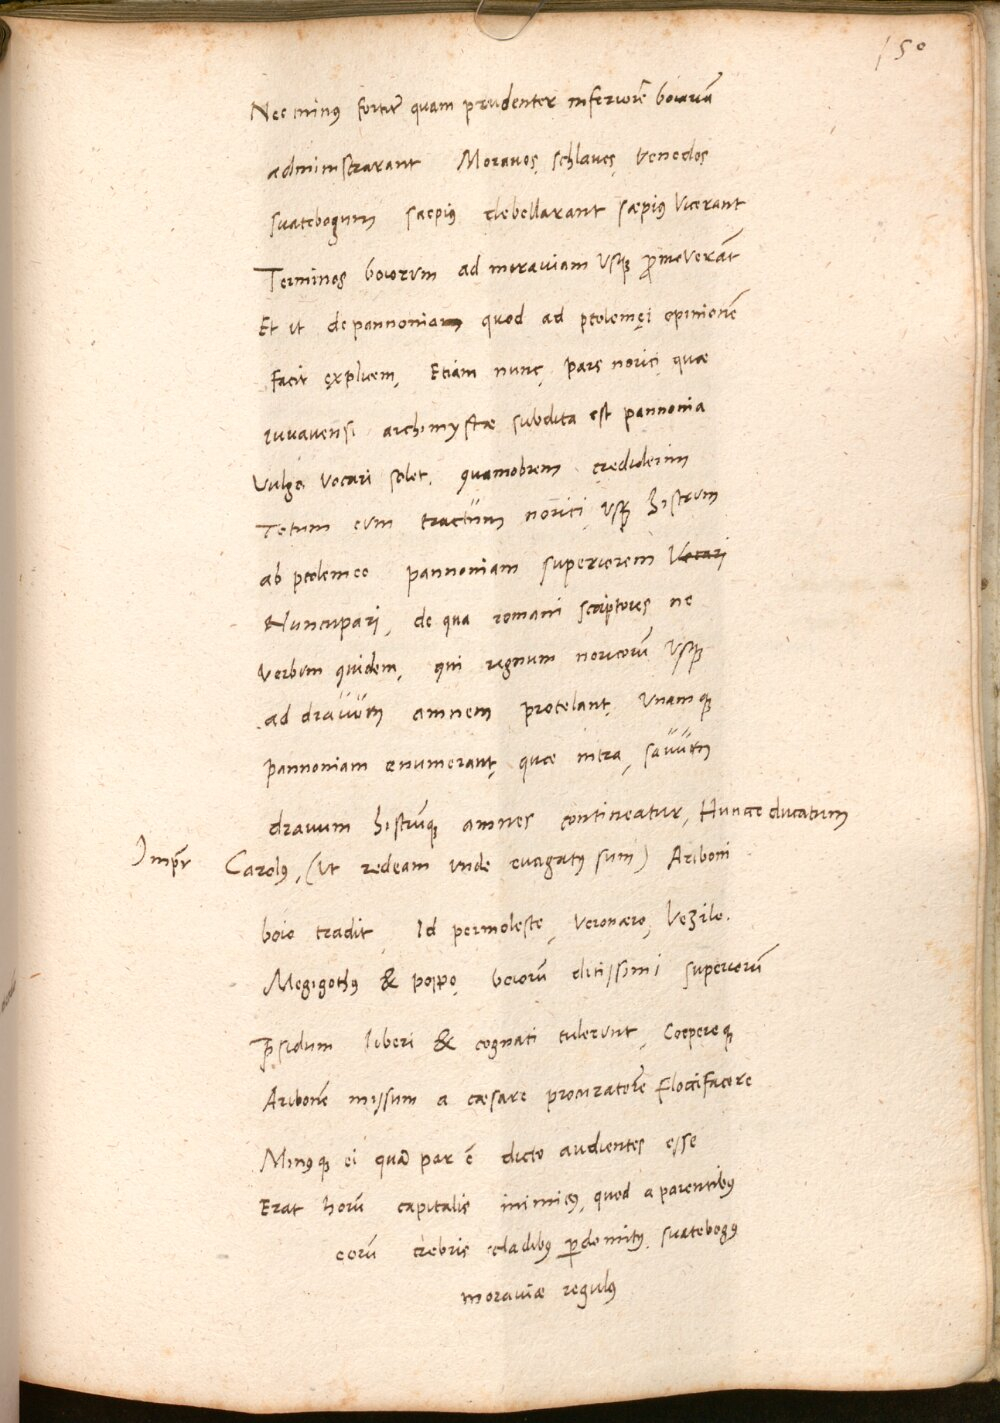 150
Nec minus fortiter quam prudenter inferiorē boiariā
administrarant Moravos, schlavos, venedos
suatebogum saepius debellarant saepius vicerant
Terminos boiorum ad moraviam usque promoverāt
Et ut de pannonia quod ad ptolemęi opinionē
facit explicem, Etiam nunc, pars norici quae
iuvavensi archimystae subdita est pannonia
vulgo vocari solet, quamobrem crediderim
Totum eum tractum norici usque histrum
ab ptolemeo pannoniam superiorem vocari
Nuncupari, de qua romani scriptores ne
verbum quidem, qui regnum noricorū usque
ad dravum amnem protelant, unamque
pannoniam enumerant, quae intra, savum
dravum histrumque amnes contineatur, Hunc ducatum
Impr Carolus, (ut redeam unde evagatus sum) Ariboni
boio tradit, Id permoleste, Veronaro, Vezilo.
Megigothus & poppo, boiorū ditissimi superiorū
Praesidum liberi & cognati tulerunt, Coepereque
Aribonē missum a caesare procuratorē Floccifacere
Minusque ei quā par ē dicto audientes esse
Erat horū capitalis inimicus, quod a parentibus
eorū crebris cladibus perdomitus suatebogus
moraviae regulus